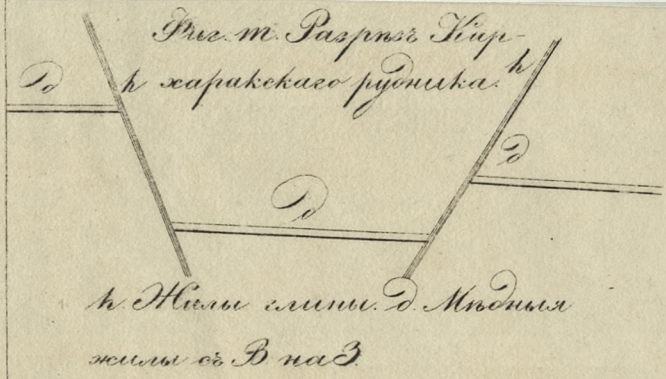 Фиг. т. Разрѣзъ Кир-
харакскаго рудника.
д h h
д
д
h. Жилы глины. д. Мѣдныя
жилы съ В на З.